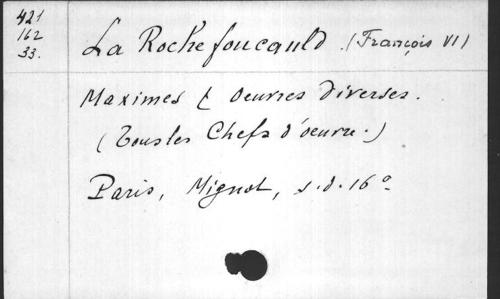 421
162
33.
La Rochefoucauld (François VI)
Maximes & Oeuvres diverses.
(Tous les Chefs d'oeuvre.)
Paris, Mignot, s.d. 16°